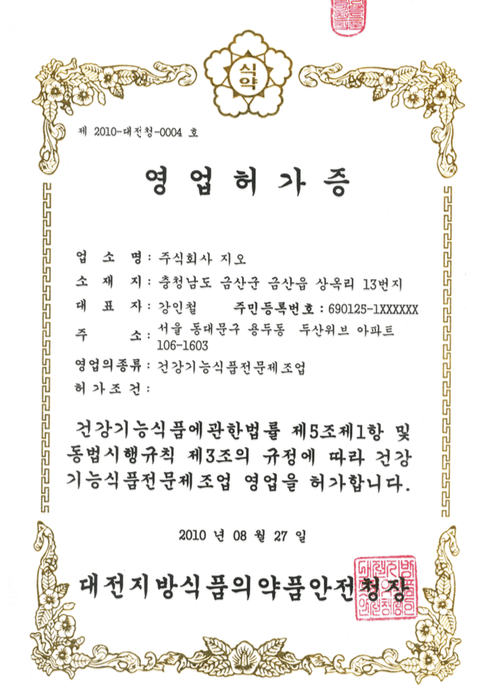 식약
제 2010-대전청-0004 호
영업허가증
업 소 명 : 주식회사 지오
소 재 지 : 충청남도 금산군 금산읍 상옥리 13번지
대 표 자 : 강인철 주민등록번호 : 690125-1XXXXXX
주 소 : 서울 동대문구 용두동 두산위브 아파트
106-1603
영업의종류 : 건강기능식품전문제조업
허가조건 :
건강기능식품에관한법률 제5조제1항 및
동법시행규칙 제3조의 규정에 따라 건강
기능식품전문제조업 영업을 허가합니다.
2010 년 08 월 27 일
대전지방식품의약품안전청장